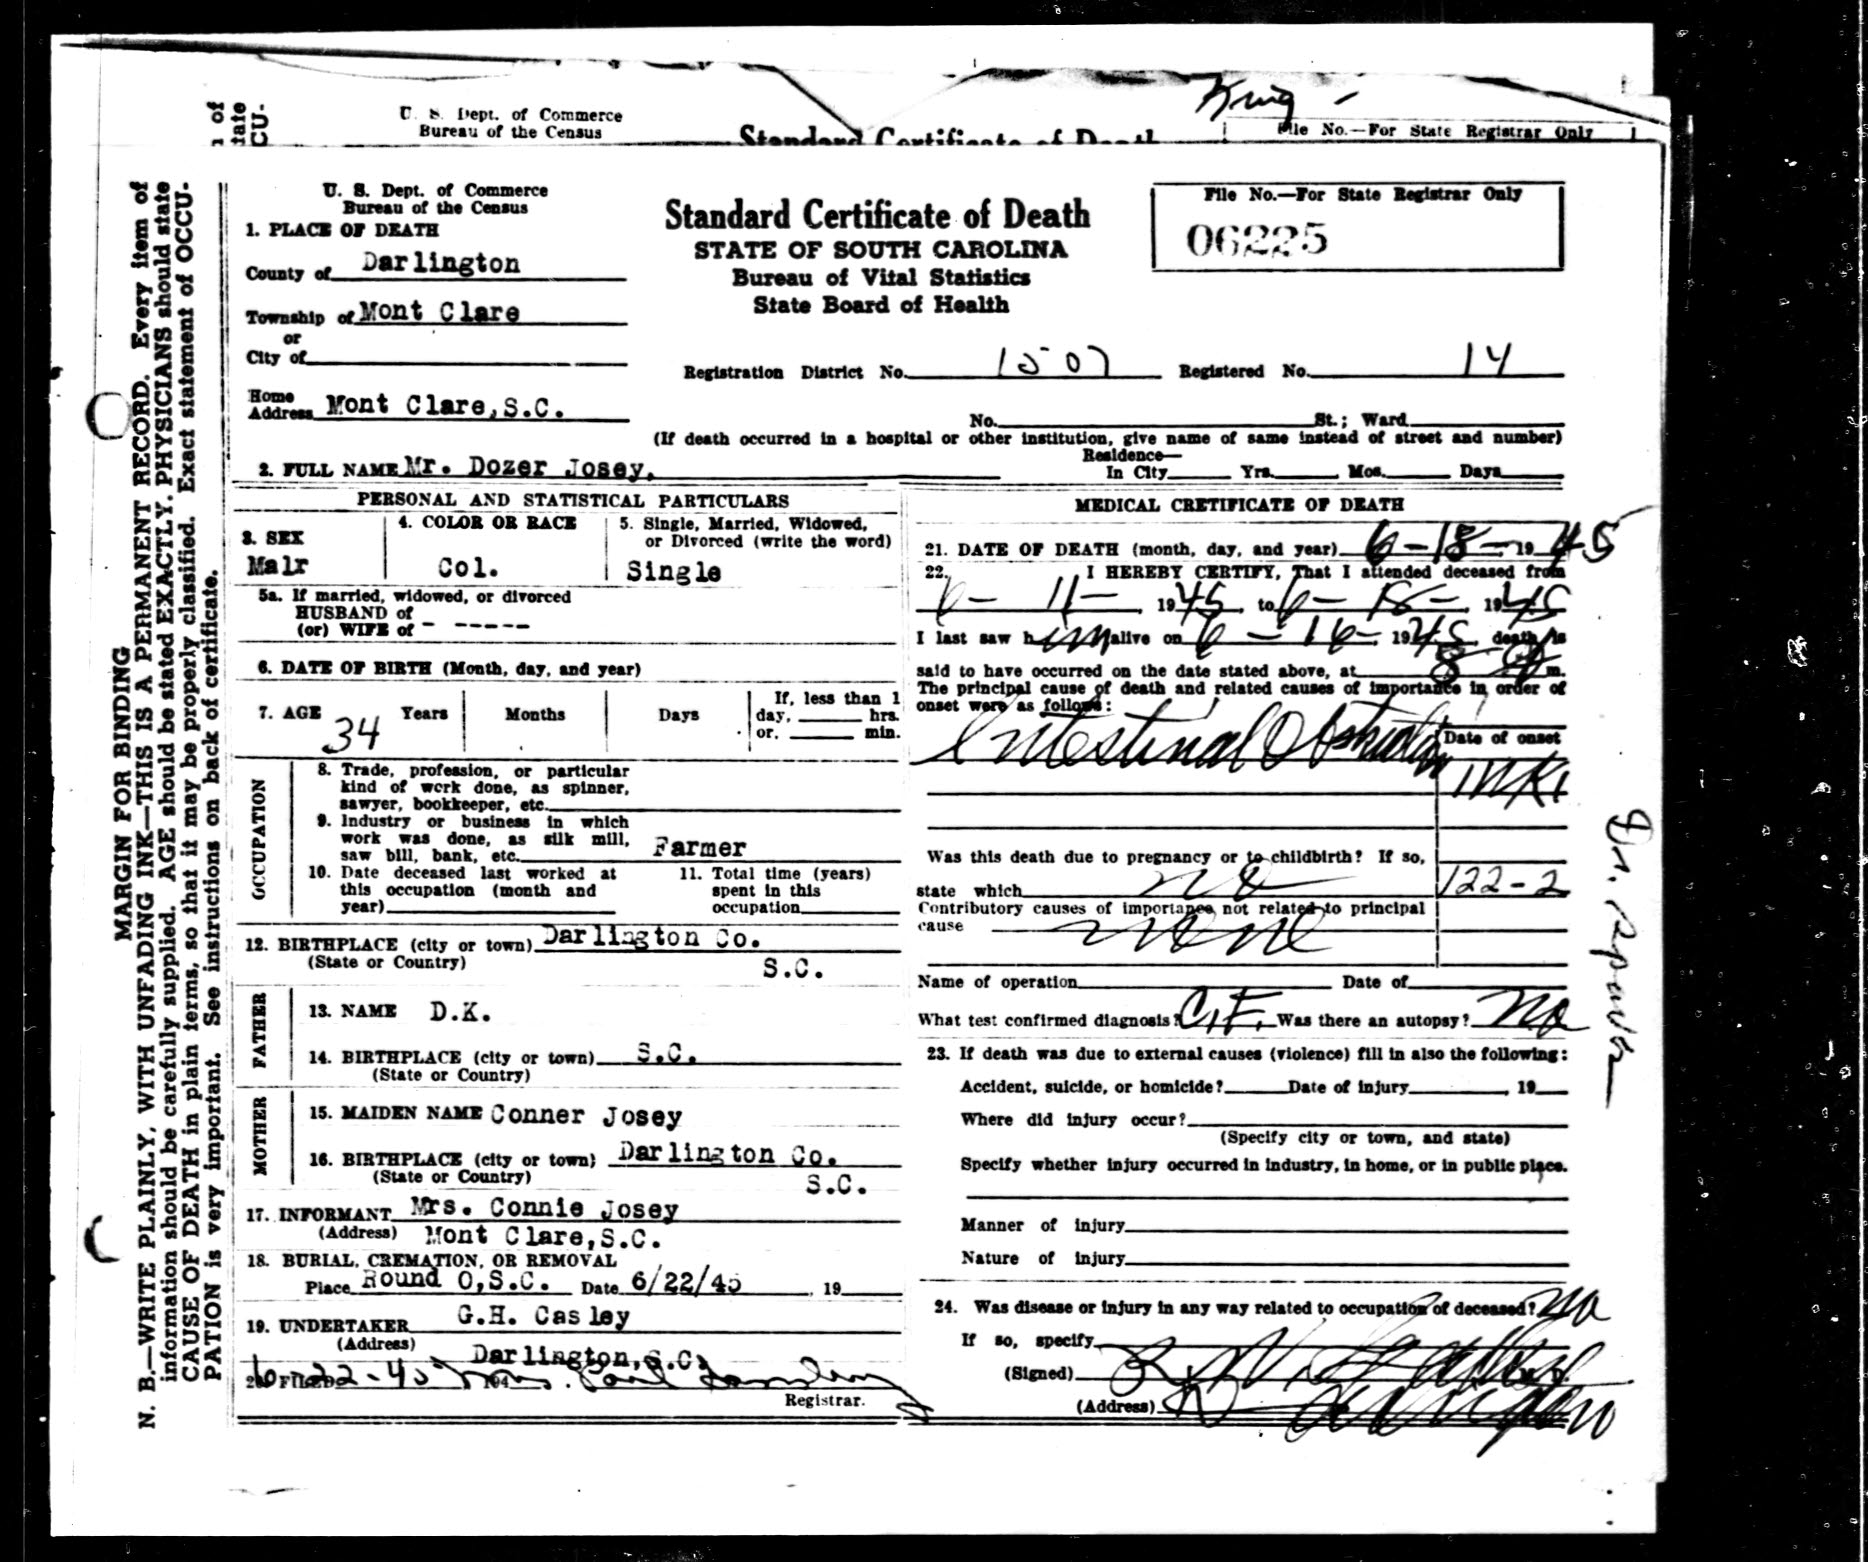 King -
U. S. Dept. of Commerce
Bureau of the Census
Standard Certificate of Death
File No.—For State Registrar Only
MARGIN FOR BINDING
N. B.—WRITE PLAINLY, WITH UNFADING INK—THIS IS A PERMANENT RECORD. Every item of
information should be carefully supplied. AGE should be stated EXACTLY. PHYSICIANS should state
CAUSE OF DEATH in plain terms, so that it may be properly classified. Exact statement of OCCU-
PATION is very important. See instructions on back of certificate.
U. S. Dept. of Commerce
Bureau of the Census
Standard Certificate of Death
STATE OF SOUTH CAROLINA
Bureau of Vital Statistics
State Board of Health
File No.—For State Registrar Only
06225
1. PLACE OF DEATH
County of Darlington
Township of Mont Clare
or
City of
Home Address Mont Clare, S.C.
Registration District No. 1507 Registered No. 14
No. St.; Ward
(If death occurred in a hospital or other institution, give name of same instead of street and number)
2. FULL NAME Mr. Dozer Josey,
Residence—
In City Yrs. Mos. Days
PERSONAL AND STATISTICAL PARTICULARS
3. SEX
Malr
4. COLOR OR RACE
Col.
5. Single, Married, Widowed,
or Divorced (write the word)
Single
5a. If married, widowed, or divorced
HUSBAND of
(or) WIFE of - -----
6. DATE OF BIRTH (Month, day, and year)
7. AGE 34 Years Months Days
If, less than 1
day, hrs.
or, min.
OCCUPATION
8. Trade, profession, or particular
kind of work done, as spinner,
sawyer, bookkeeper, etc.
9. Industry or business in which
work was done, as silk mill,
saw bill, bank, etc. Farmer
10. Date deceased last worked at
this occupation (month and
year)
11. Total time (years)
spent in this
occupation
12. BIRTHPLACE (city or town) Darlington Co.
(State or Country) S.C.
FATHER
13. NAME D.K.
14. BIRTHPLACE (city or town) S.C.
(State or Country)
MOTHER
15. MAIDEN NAME Conner Josey
16. BIRTHPLACE (city or town) Darlington Co.
(State or Country) S.C.
17. INFORMANT Mrs. Connie Josey
(Address) Mont Clare, S.C.
18. BURIAL, CREMATION, OR REMOVAL
Place Round O, S.C. Date 6/22/45, 19
19. UNDERTAKER G.H. Casley
(Address) Darlington, S.C.
20. FILED 6-22-45 194 Mrs. Paul
Registrar.
MEDICAL CRETIFICATE OF DEATH
21. DATE OF DEATH (month, day, and year) 6-18-1945
22. I HEREBY CERTIFY, That I attended deceased from
6-11-, 1945, to 6-18-, 1945
I last saw him alive on 6-16-, 1945, death is
said to have occurred on the date stated above, at 8 m.
The principal cause of death and related causes of importance in order of
onset were as follows:
Intestinal Obstruction
Date of onset
1 wk
Was this death due to pregnancy or to childbirth? If so,
state which no
122-2
Contributory causes of importance not related to principal
cause none
Name of operation Date of
What test confirmed diagnosis? C.F. Was there an autopsy? No
23. If death was due to external causes (violence) fill in also the following:
Accident, suicide, or homicide? Date of injury, 19
Where did injury occur?
(Specify city or town, and state)
Specify whether injury occurred in industry, in home, or in public place.
Manner of injury
Nature of injury
24. Was disease or injury in any way related to occupation of deceased? No
If so, specify
(Signed)
(Address) Darlington
Dr.